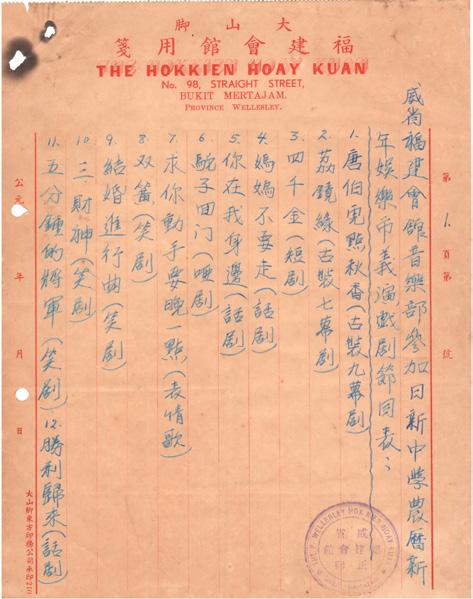 大山脚
福建會館用箋
THE HOKKIEN HOAY KUAN
No. 98, STRAIGHT STREET,
BUKIT MERTAJAM.
PROVINCE WELLESLEY.
第 1 頁第 號
威省福建會館音樂部參加日新中學農曆新
年娛樂市義演戲剧節目表：
1. 唐伯虎點秋香(古裝九幕剧)
2. 荔鏡緣(古裝七幕剧)
3. 四千金(短剧)
4. 媽媽不要走(話剧)
5. 你在我身邊(話剧)
6. 駝子回门(啞剧)
7. 求你動手要晚一點(表情歌)
8. 双簧(笑剧)
9. 結婚進行曲(笑剧)
10. 三財神(笑剧)
11. 五分鐘的將軍(笑剧) 12. 勝利歸來(話剧)
公元 年 月 日
大山脚東方印務公司承印
威省
福建會館